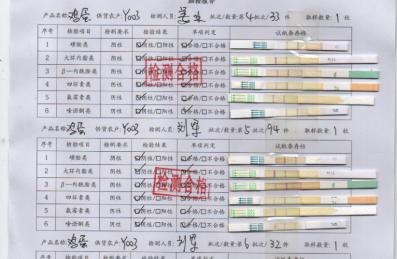 检测报告
产品名称:鸡蛋 供货农户:Y003 检测人员: 批次/数量:第4批次/33件 取样数量:1枚
序号 检验项目 检测要求 检验结果 单项判定 试纸条存档
1 磺胺类 阴性 ☑阴性/☐阳性 ☑合格/☐不合格
2 大环内酯类 阴性 ☑阴性/☐阳性 ☑合格/☐不合格
3 β-内酰胺类 阴性 ☑阴性/☐阳性 ☑合格/☐不合格
4 四环素类 阴性 ☑阴性/☐阳性 ☑合格/☐不合格
5 氟霉素类 阴性 ☑阴性/☐阳性 ☑合格/☐不合格
6 喹诺酮类 阴性 ☑阴性/☐阳性 ☑合格/☐不合格
检测合格
产品名称:鸡蛋 供货农户:Y003 检测人员:刘军 批次/数量:第5批次/94件 取样数量:1枚
序号 检验项目 检测要求 检验结果 单项判定 试纸条存档
1 磺胺类 阴性 ☑阴性/☐阳性 ☑合格/☐不合格
2 大环内酯类 阴性 ☑阴性/☐阳性 ☑合格/☐不合格
3 β-内酰胺类 阴性 ☑阴性/☐阳性 ☑合格/☐不合格
4 四环素类 阴性 ☑阴性/☐阳性 ☑合格/☐不合格
5 氟霉素类 阴性 ☑阴性/☐阳性 ☑合格/☐不合格
6 喹诺酮类 阴性 ☑阴性/☐阳性 ☑合格/☐不合格
检测合格
产品名称:鸡蛋 供货农户:Y003 检测人员:刘军 批次/数量:第6批次/32件 取样数量:1枚